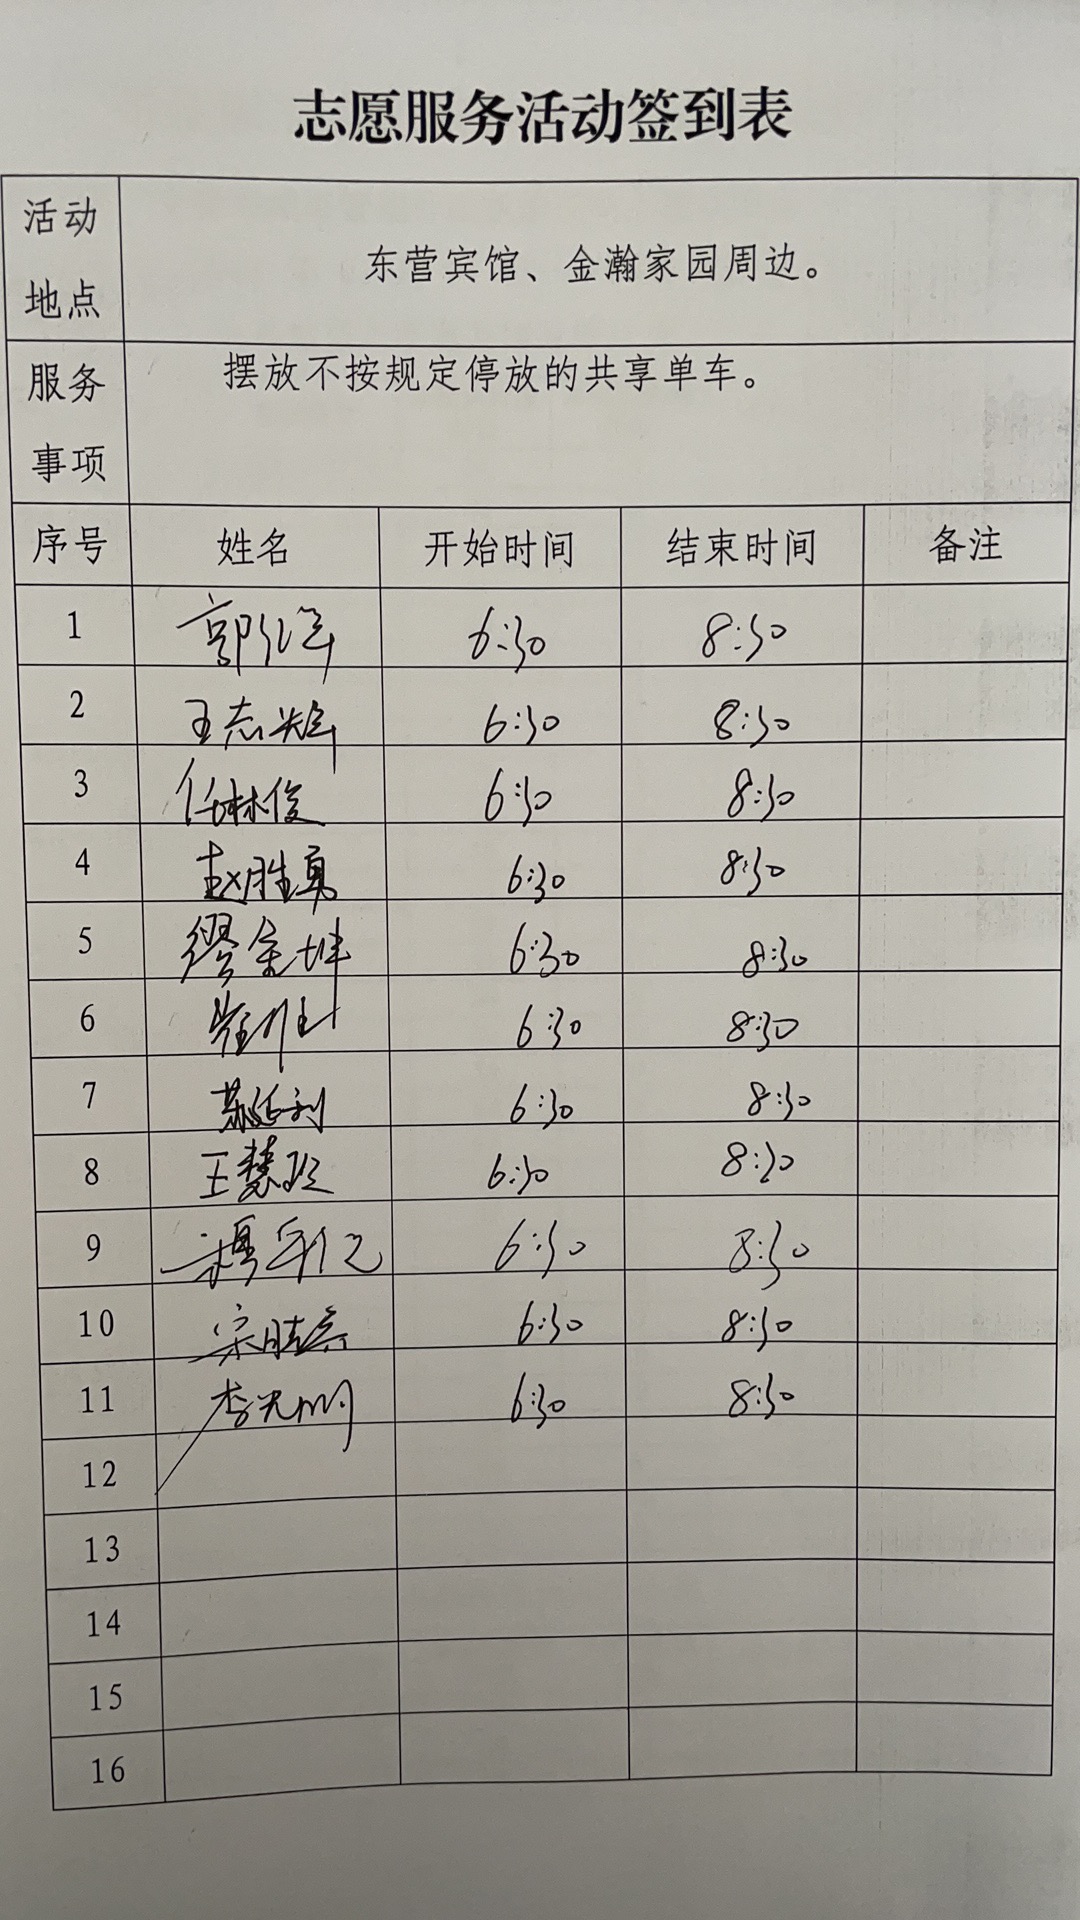 志愿服务活动签到表
活动地点 东营宾馆、金瀚家园周边。
服务事项 摆放不按规定停放的共享单车。
序号 姓名 开始时间 结束时间 备注
1 6:30 8:30
2 王志辉 6:30 8:30
3 任林俊 6:30 8:30
4 赵胜勇 6:30 8:30
5 缪金坤 6:30 8:30
6 6:30 8:30
7 苏延利 6:30 8:30
8 王慧 6:30 8:30
9 6:30 8:30
10 宋 6:30 8:30
11 李光明 6:30 8:30
12
13
14
15
16